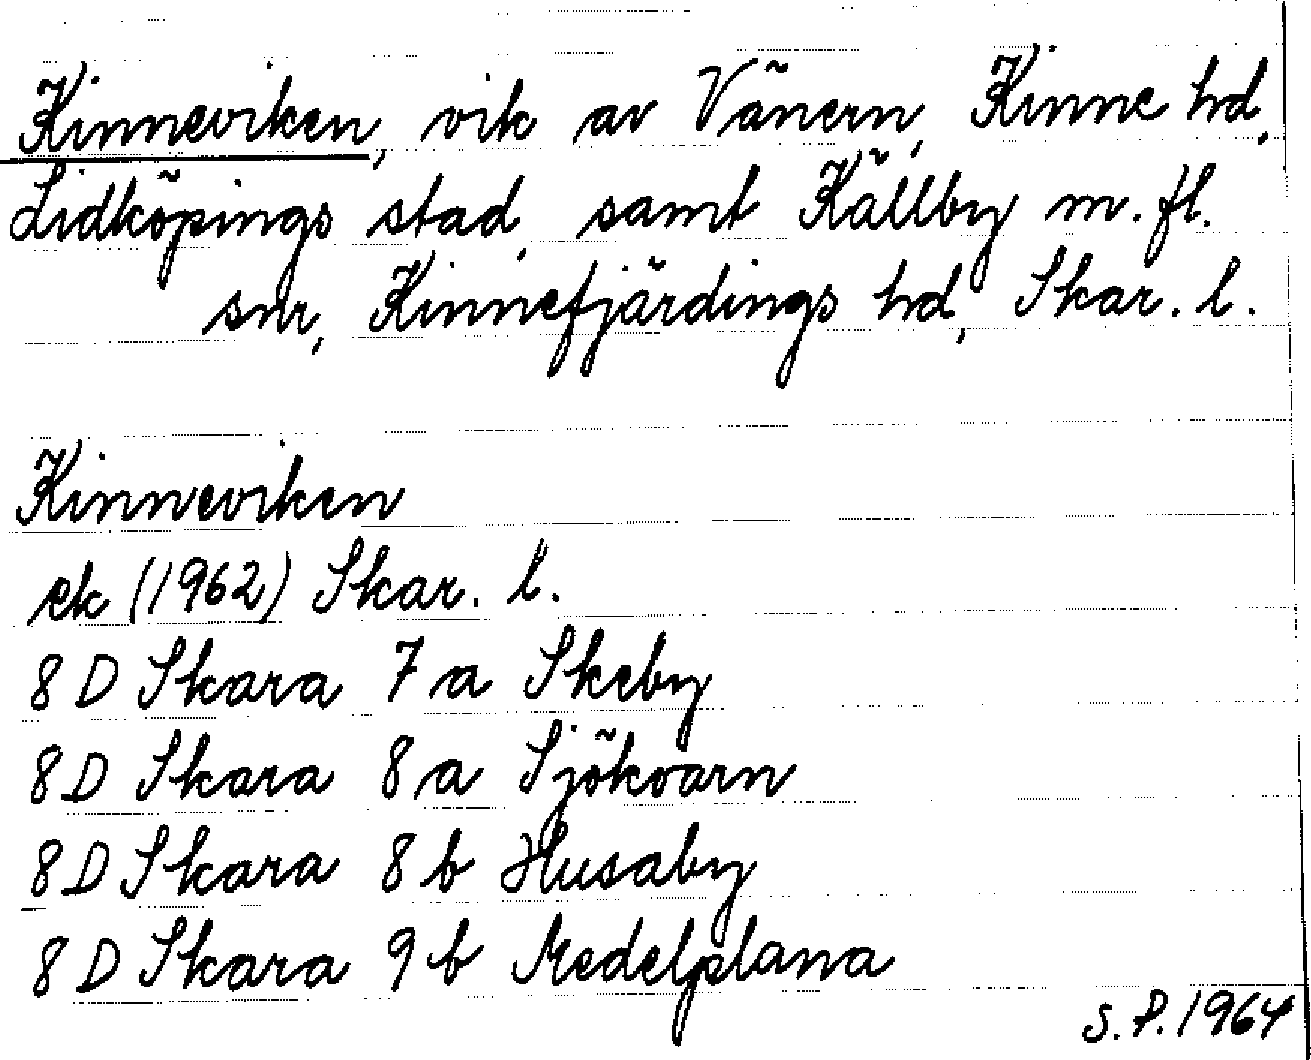 Kinneviken, vik av Vänern, Kinne hd,
Lidköpings stad, samt Källby m. fl.
snr, Kinnefjärdings hd, Skar. l.
Kinneviken
ek (1962) Skar. l.
8 D Skara 7 a Skeby
8 D Skara 8 a Sjökvarn
8 D Skara 8 b Husaby
8 D Skara 9 b Medelplana
S. P. 1964